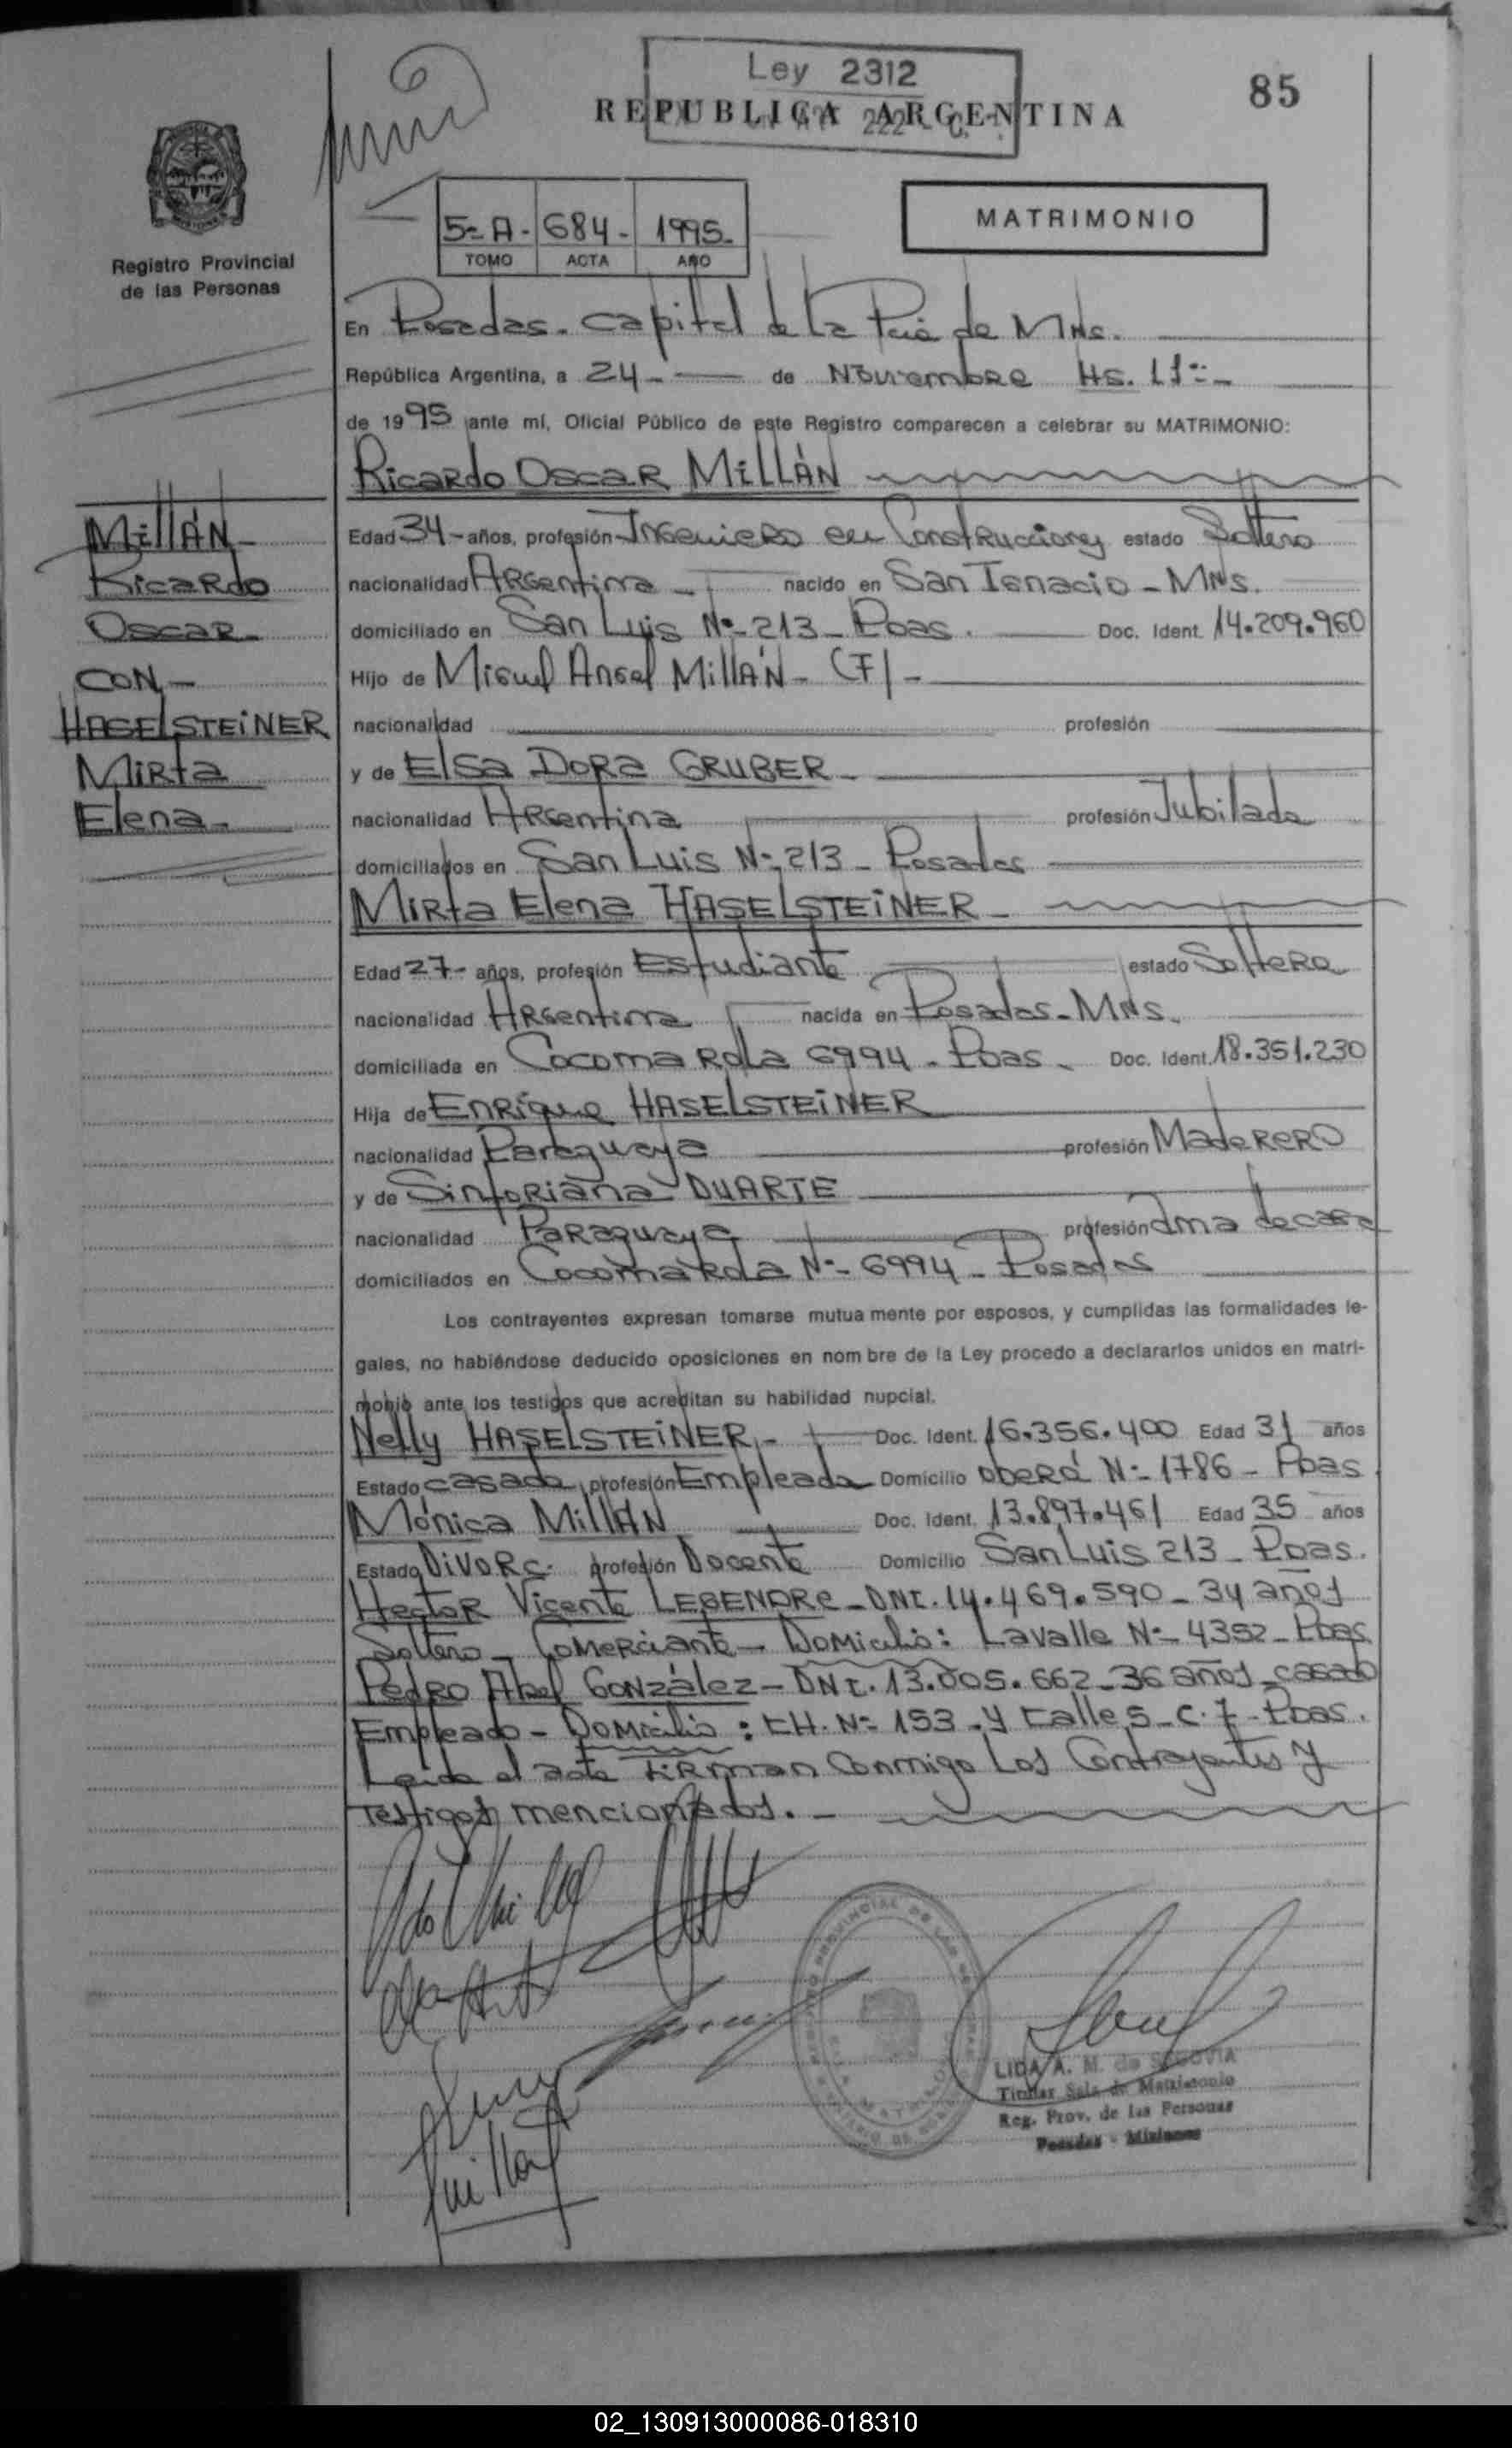 Ley 2312
85
REPUBLICA ARGENTINA
5=A- 684- 1995-
TOMO ACTA AÑO
MATRIMONIO
Registro Provincial
de las Personas
En Posadas- Capital de la Pcia de Mnes.
República Argentina, a 24- de Noviembre Hs. 11=-
de 1995 ante mí, Oficial Público de este Registro comparecen a celebrar su MATRIMONIO:
Ricardo Oscar MILLÁN
MillÁN-
Ricardo
Oscar-
CON-
HASELSTEINER
Mirta
Elena-
Edad 34- años, profesión Ingeniero en Construcciones estado Soltero
nacionalidad Argentina - nacido en San Ignacio - Mns.
domiciliado en San Luis Nº-213- Pdas. Doc. Ident. 14.209.960
Hijo de Miguel Angel MillÁN- (F)-
nacionalidad profesión
y de Elsa Dora GRUBER-
nacionalidad Argentina profesión Jubilada
domiciliados en San Luis Nº-213- Posadas
Mirta Elena HASELSTEINER-
Edad 27- años, profesión Estudiante estado Soltera
nacionalidad Argentina nacida en Posadas-Mns.
domiciliada en Cocomarola 6994- Pdas- Doc. Ident. 18.351.230
Hija de Enrique HASELSTEINER
nacionalidad Paraguaya profesión Maderero
y de Sinforiana DUARTE
nacionalidad Paraguaya profesión Ama de casa
domiciliados en Cocomarola Nº- 6994- Posadas
Los contrayentes expresan tomarse mutua mente por esposos, y cumplidas las formalidades le-
gales, no habiéndose deducido oposiciones en nom bre de la Ley procedo a declararlos unidos en matri-
monio ante los testigos que acreditan su habilidad nupcial.
Nelly HASELSTEINER- Doc. Ident. 16.356.400 Edad 31 años
Estado casada profesión Empleada Domicilio Oberá Nº- 1786- Pdas
Mónica MillÁN Doc. Ident. 13.897.461 Edad 35 años
Estado Divorc. profesión Docente Domicilio San Luis 213- Pdas.
Hector Vicente LEGENDRE- DNI. 14.469.590- 34 años
Soltero- Comerciante- Domicilio: Lavalle Nº- 4352- Pdas
Pedro Abel González- DNI. 13.005.662- 36 años- casado
Empleado- Domicilio: CH. Nº 153- y calle 5- C. 7- Pdas.
Leida el acta firman conmigo los Contrayentes y
testigos mencionados.-
LIDA A. M. de SEGOVIA
Titular Sala de Matrimonio
Reg. Prov. de las Personas
Posadas - Misiones
02_130913000086-018310